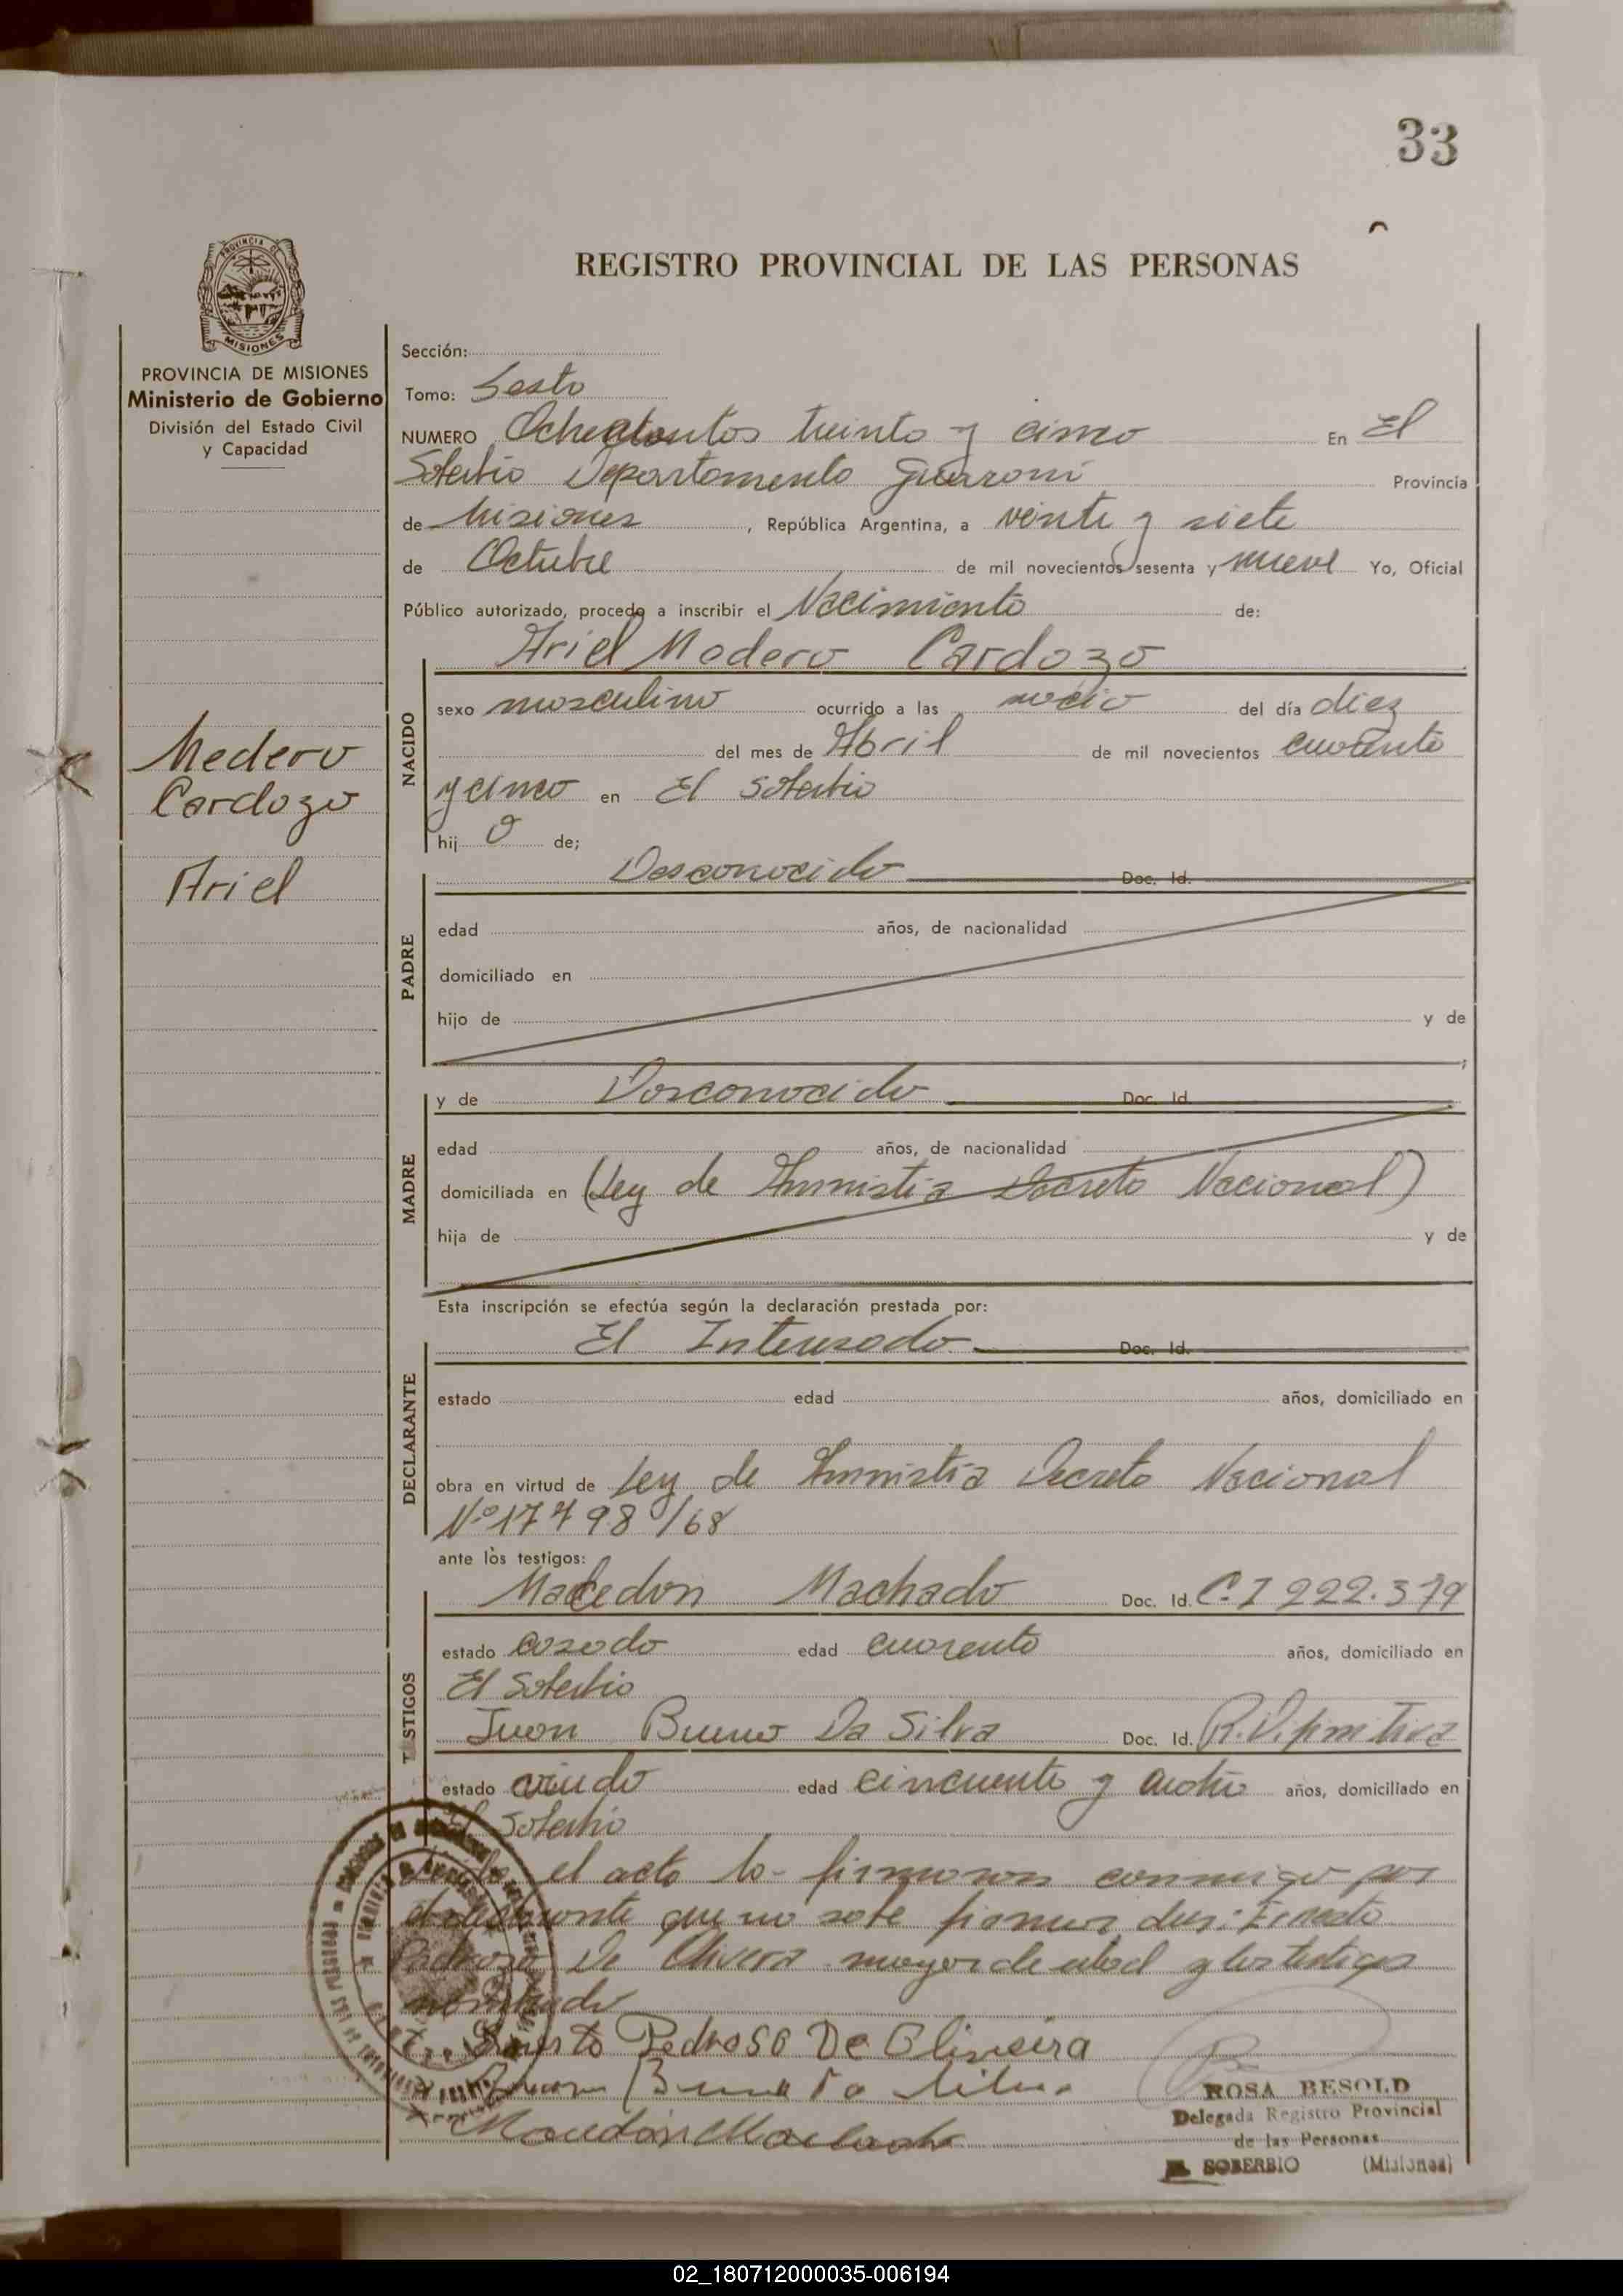 33
REGISTRO PROVINCIAL DE LAS PERSONAS
PROVINCIA DE
MISIONES
PROVINCIA DE MISIONES
Ministerio de Gobierno
División del Estado Civil
y Capacidad
Medero
Cardozo
Ariel
Sección:
Tomo: Sesto
NUMERO treinta y cinco En El
Soberbio Departamento Guaraní Provincia
de Misiones, República Argentina, a veinte y siete
de Octubre de mil novecientos sesenta y nueve Yo, Oficial
Público autorizado, procedo a inscribir el Nacimiento de:
Ariel Medero Cardozo
NACIDO
sexo masculino ocurrido a las del día diez
del mes de Abril de mil novecientos cuarenta
y cinco en El Soberbio
hijo de;
PADRE
Desconocido Doc. Id.
edad años, de nacionalidad
domiciliado en
hijo de y de
;
MADRE
y de Desconocido Doc. Id.
edad años, de nacionalidad
domiciliada en (Ley de Amnistia Decreto Nacional)
hija de y de
Esta inscripción se efectúa según la declaración prestada por:
DECLARANTE
El Interesado Doc. Id.
estado edad años, domiciliado en
obra en virtud de Ley de Amnistia Decreto Nacional
Nº 17798/68
ante los testigos:
TESTIGOS
Macedon Machado Doc. Id. C.I 222.379
estado casado edad cuarenta años, domiciliado en
El Soberbio
Juan Bueno Da Silva Doc. Id.
estado viudo edad cincuenta y años, domiciliado en
El Soberbio
el acto lo firmaron conmigo por
que no sabe firmar Ernesto
De Olivera mayor de edad y los testigos
Ernesto Pedroso De Oliveira
Juan Bueno Da Silva
Macedon Machado
ROSA BESOLD
Delegada Registro Provincial
de las Personas
SOBERBIO (Misiones)
02_180712000035-006194